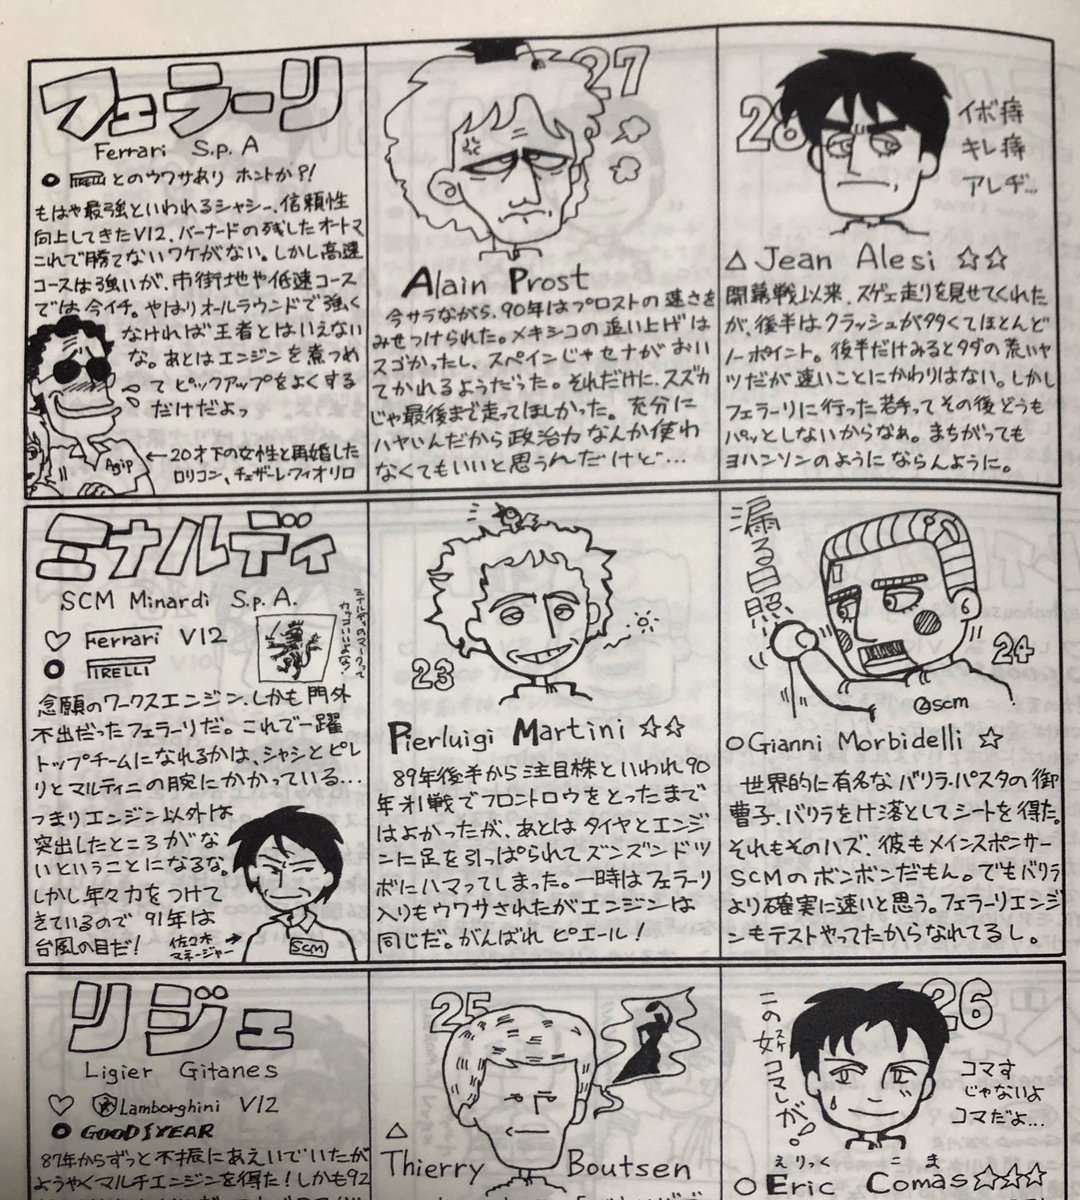 フェラーリ
Ferrari S.p.A
PIRELLIとのウワサあり ホントか?!
もはや最強といわれるシャシー、信頼性
向上してきたV12、バーナードの残したオートマ
これで勝てないワケがない。しかし高速
コースは強いが、市街地や低速コース
では今イチ。やはりオールラウンドで強く
なければ王者とはいえない
な。あとはエンジンを煮つめ
てピックアップをよくする
だけだよっ
Agip
←20才下の女性と再婚した
ロリコン、チェザーレ・フィオリロ
27
Alain Prost
今サラながら、90年はプロストの速さを
みせつけられた。メキシコの追い上げは
スゴかったし、スペインじゃセナがおい
てかれるようだった。それだけに、スズカ
じゃ最後まで走ってほしかった。充分に
ハヤいんだから政治力なんか使わ
なくてもいいと思うんだけど…
28
イボ痔
キレ痔
アレヂ…
△Jean Alesi ☆☆
開幕戦以来、スゲェ走りを見せてくれた
が、後半はクラッシュが多くてほとんど
ノーポイント。後半だけみるとタダの荒いヤ
ツだが速いことにかわりはない。しかし
フェラーリに行った若手ってその後どうも
パッとしないからなぁ。まちがっても
ヨハンソンのようにならんように。
ミナルディ
SCM Minardi S.p.A.
♡ Ferrari V12
PIRELLI
ミナルディのマークって
カッコいいよな!
念願のワークスエンジン、しかも門外
不出だったフェラーリだ。これで一躍
トップチームになれるかは、シャシとピレ
リとマルティニの腕にかかっている…
つまりエンジン以外は
突出したところがな
いということになるな。
しかし年々力をつけて
きているので91年は
台風の目だ!
佐々木
マネージャー
SCM
23
Pierluigi Martini ☆☆
89年後半から注目株といわれ90
年米戦でフロントロウをとったまで
はよかったが、あとはタイヤとエンジ
ンに足を引っぱられてズンズンドツ
ボにハマってしまった。一時はフェラーリ
入りもウワサされたがエンジンは
同じだ。がんばれピエール!
漏る日照!
24
scm
○Gianni Morbidelli ☆
世界的に有名なバリラ・パスタの御
曹子、バリラをけ落としてシートを得た。
それもそのハズ、彼もメインスポンサー
SCMのボンボンだもん。でもバリラ
より確実に速いと思う。フェラーリエンジ
ンもテストやってたからなれてるし。
リジェ
Ligier Gitanes
♡ Lamborghini V12
GOODYEAR
87年からずっと不振にあえいでいたが
ようやくマルチエンジンを得た!しかも92
25
△
Thierry Boutsen
26
この奴コマしが!
コマす
じゃないよ
コマだよ…
えりっく こま
○Eric Comas ☆☆☆